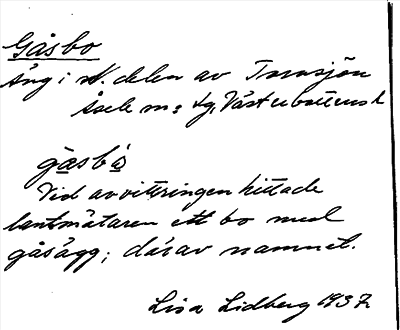 Gåsbo
äng i N. delen av Torvsjön
Åsele sn: lg, Västerbottens l
gåsbo
Vid avvittringen hittade
lantmätaren ett bo med
gåsägg; därav namnet.
Lisa Lidberg 1937